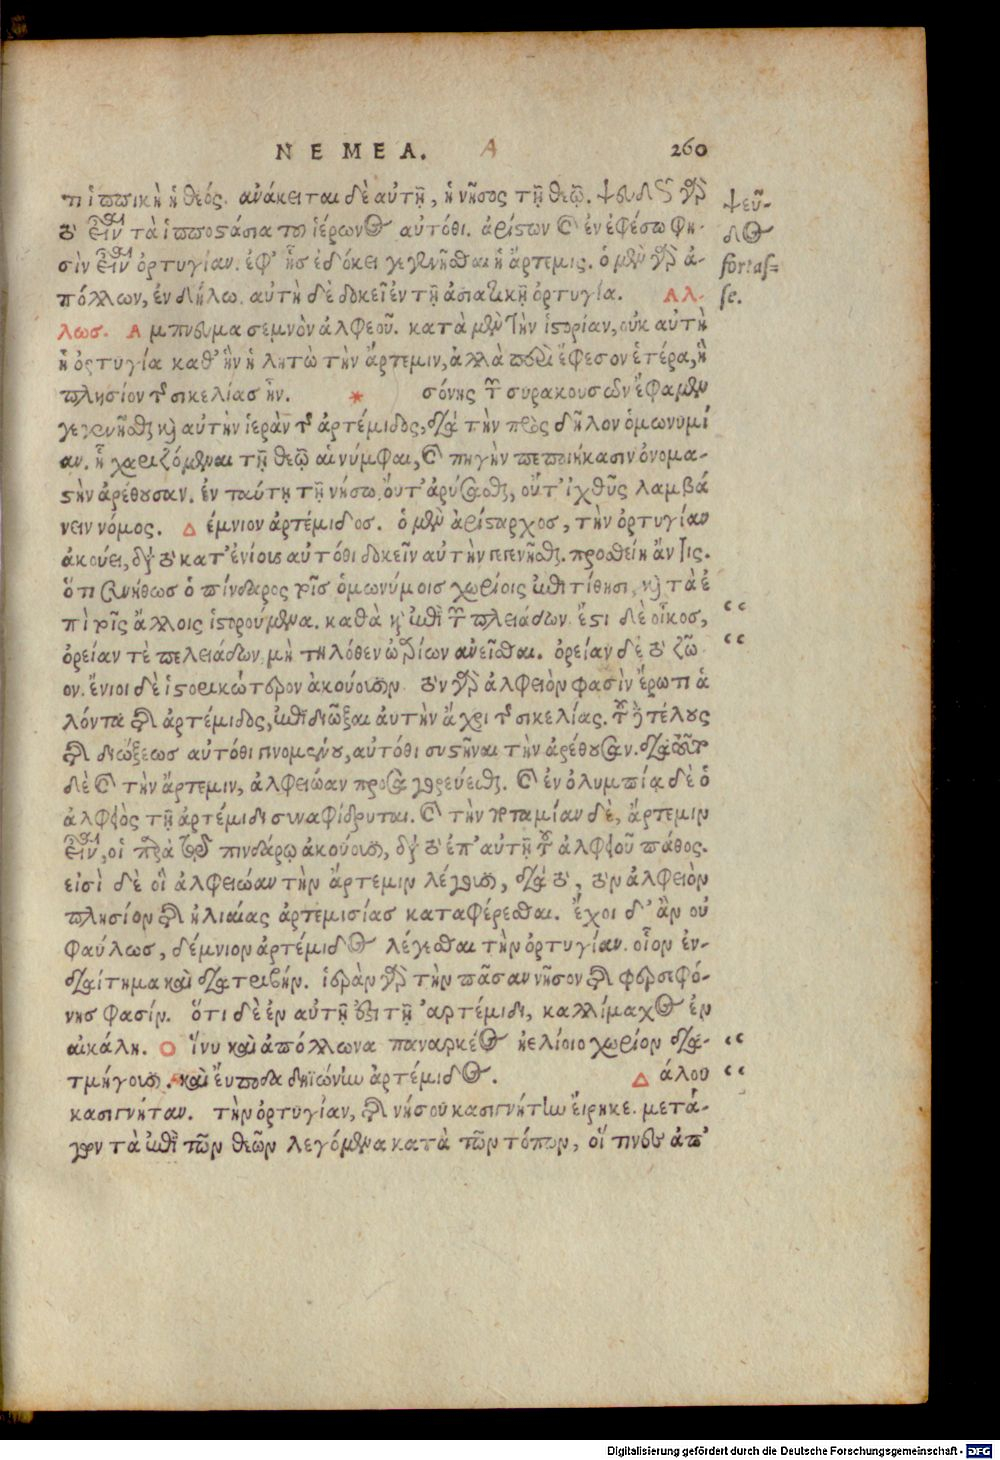 ΝΕΜΕΑ. A 260
τι ἱππικὴ ἡ θεός. ἀνάκειται δὲ αὐτῇ, ἡ νῆσος τῇ θεῷ. ψευδὲς γὰρ
ψεῦ-
οὐ τὰ ἱπποστάσια τοῦ ἱέρωνος αὐτόθι. ἀρίστων καὶ ἐν ἐφέσω φη-
δος
σὶν ὀρτυγίαν. ἐφ' ἧς ἐδόκει γεγενῆσθαι ἡ ἄρτεμις. ὁ μὲν γὰρ ἀ-
fortas-
πόλλων, ἐν δήλω. αὐτὴ δὲ δοκεῖ ἐν τῇ ἀσιατικῇ ὀρτυγία. Αλ-
se.
λως. Α μπνευμα σεμνὸν ἀλφεοῦ. κατὰ μὲν τὴν ἱστορίαν, οὐκ αὐτὴ
ἡ ὀρτυγία καθ' ἣν ἡ λητὼ τὴν ἄρτεμιν, ἀλλὰ περὶ ἔφεσον ἑτέρα, ἢ
πλησίον τῆς σικελίας ἦν. * σόνης τῶν συρακουσῶν ἔφαμεν
γεγενῆσθαι καὶ αὐτὴν ἱερὰν τῆς ἀρτέμιδος, διὰ τὴν πρὸς δῆλον ὁμωνυμί
αν. ᾗ χαριζόμεναι τῇ θεῷ αἱ νύμφαι, καὶ πηγὴν πεποιήκασιν ὀνομα-
στὴν ἀρέθουσαν. ἐν ταύτη τῇ νήσω οὔτ' ἀρύσασθαι, οὔτ' ἰχθῦς λαμβά
νειν νόμος. Δ έμνιον ἀρτέμιδος. ὁ μὲν ἀρίσταρχος, τὴν ὀρτυγίαν
ἀκούει, διὰ τὸ κατ' ἐνίους αὐτόθι δοκεῖν αὐτὴν γεγενῆσθαι. προσθείη ἄν τις.
ὅτι συνήθως ὁ πίνδαρος τοῖς ὁμωνύμοις χωρίοις ἐπιτίθησι, καὶ τὰ ἐ
πὶ τοῖς ἄλλοις ἱστορούμενα. καθὰ καὶ ἐπὶ τῶν πλειάδων. ἔστι δὲ οἶκος,
“
ὀρείαν τὲ πελειάδων, μὴ τηλόθεν ὠρίων ἀνεῖσθαι. ὀρείαν δὲ τὸ ζῶ
“
ον. ἔνιοι δὲ ἱστορικώτερον ἀκούουσιν τὸν γὰρ ἀλφειὸν φασὶν ἔρωτι ἁ
λόντα τῆς ἀρτέμιδος, ἐπιδιῶξαι ἀυτὴν ἄχρι τῆς σικελίας. τοῦ δὲ τέλους
τῆς διώξεως αὐτόθι γινομένου, αὐτόθι συστῆναι τὴν ἀρέθουσαν. διὰ τοῦτο
δὲ καὶ τὴν ἄρτεμιν, ἀλφειώαν προσαγορεύεσθαι. καὶ ἐν ὀλυμπία δὲ ὁ
ἀλφειὸς τῇ ἀρτέμιδι συναφίδρυται. καὶ τὴν ποταμίαν δὲ, ἄρτεμιν
οἱ παρὰ τῷ πινδάρῳ ἀκούουσι, διὰ τὸ ἐπ' αὐτῇ τοῦ ἀλφειοῦ πάθος.
εἰσὶ δὲ οἳ ἀλφειώαν τὴν ἄρτεμιν λέγουσι, διὰ τὸ, τὸν ἀλφειὸν
πλησίον τῆς ἠλιαίας ἀρτεμισίας καταφέρεσθαι. ἔχοι δ' ἂν οὐ
φαύλως, δέμνιον ἀρτέμιδος λέγεσθαι τὴν ὀρτυγίαν. οἷον ἐν-
διαίτημα καὶ διατριβήν. ἱερὰν γὰρ τὴν πᾶσαν νῆσον τῆς φερσιφό-
νης φασίν. ὅτι δὲ ἐν αὐτῇ ἐξιτῇ 'αρτέμιδι, καλλίμαχος ἐν
αικάλη. Ο ἵνυ καὶ ἀπόλλωνα παναρκέος ἠελίοιο χωρίον διά-
“
τμήγουσι. καὶ ἔυποδα δηϊώνην ἀρτέμιδος. Δ άλου
“
κασιγνήταν. τὴν ὀρτυγίαν, τῆς νήσου κασιγνήτην ἔιρηκε. μετά-
γων τὰ ἐπὶ τῶν θεῶν λεγόμενα κατὰ τῶν τόπων, οἵ τινες ἀπ'
Digitalisierung gefördert durch die Deutsche Forschungsgemeinschaft - DFG